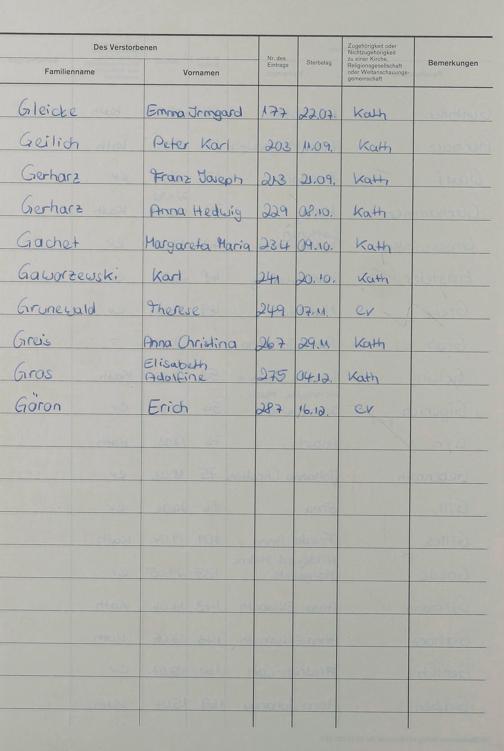 Des Verstorbenen
Familienname Vornamen Nr. des Eintrags Sterbetag Zugehörigkeit oder Nichtzugehörigkeit zu einer Kirche, Religionsgesellschaft oder Weltanschauungsgemeinschaft Bemerkungen
Gleicke Emma Irmgard 177 22.07. Kath
Geilich Peter Karl 203 11.09. Kath
Gerharz Franz Joseph 213 21.09. Kath
Gerharz Anna Hedwig 229 08.10. Kath
Gachet Margareta Maria 234 09.10. Kath
Gaworzewski Karl 241 20.10. Kath
Grunewald Therese 249 07.11. ev
Greis Anna Christina 267 29.11 Kath
Gras Elisabeth Adolfine 275 04.12. Kath
Göron Erich 287 16.12. ev